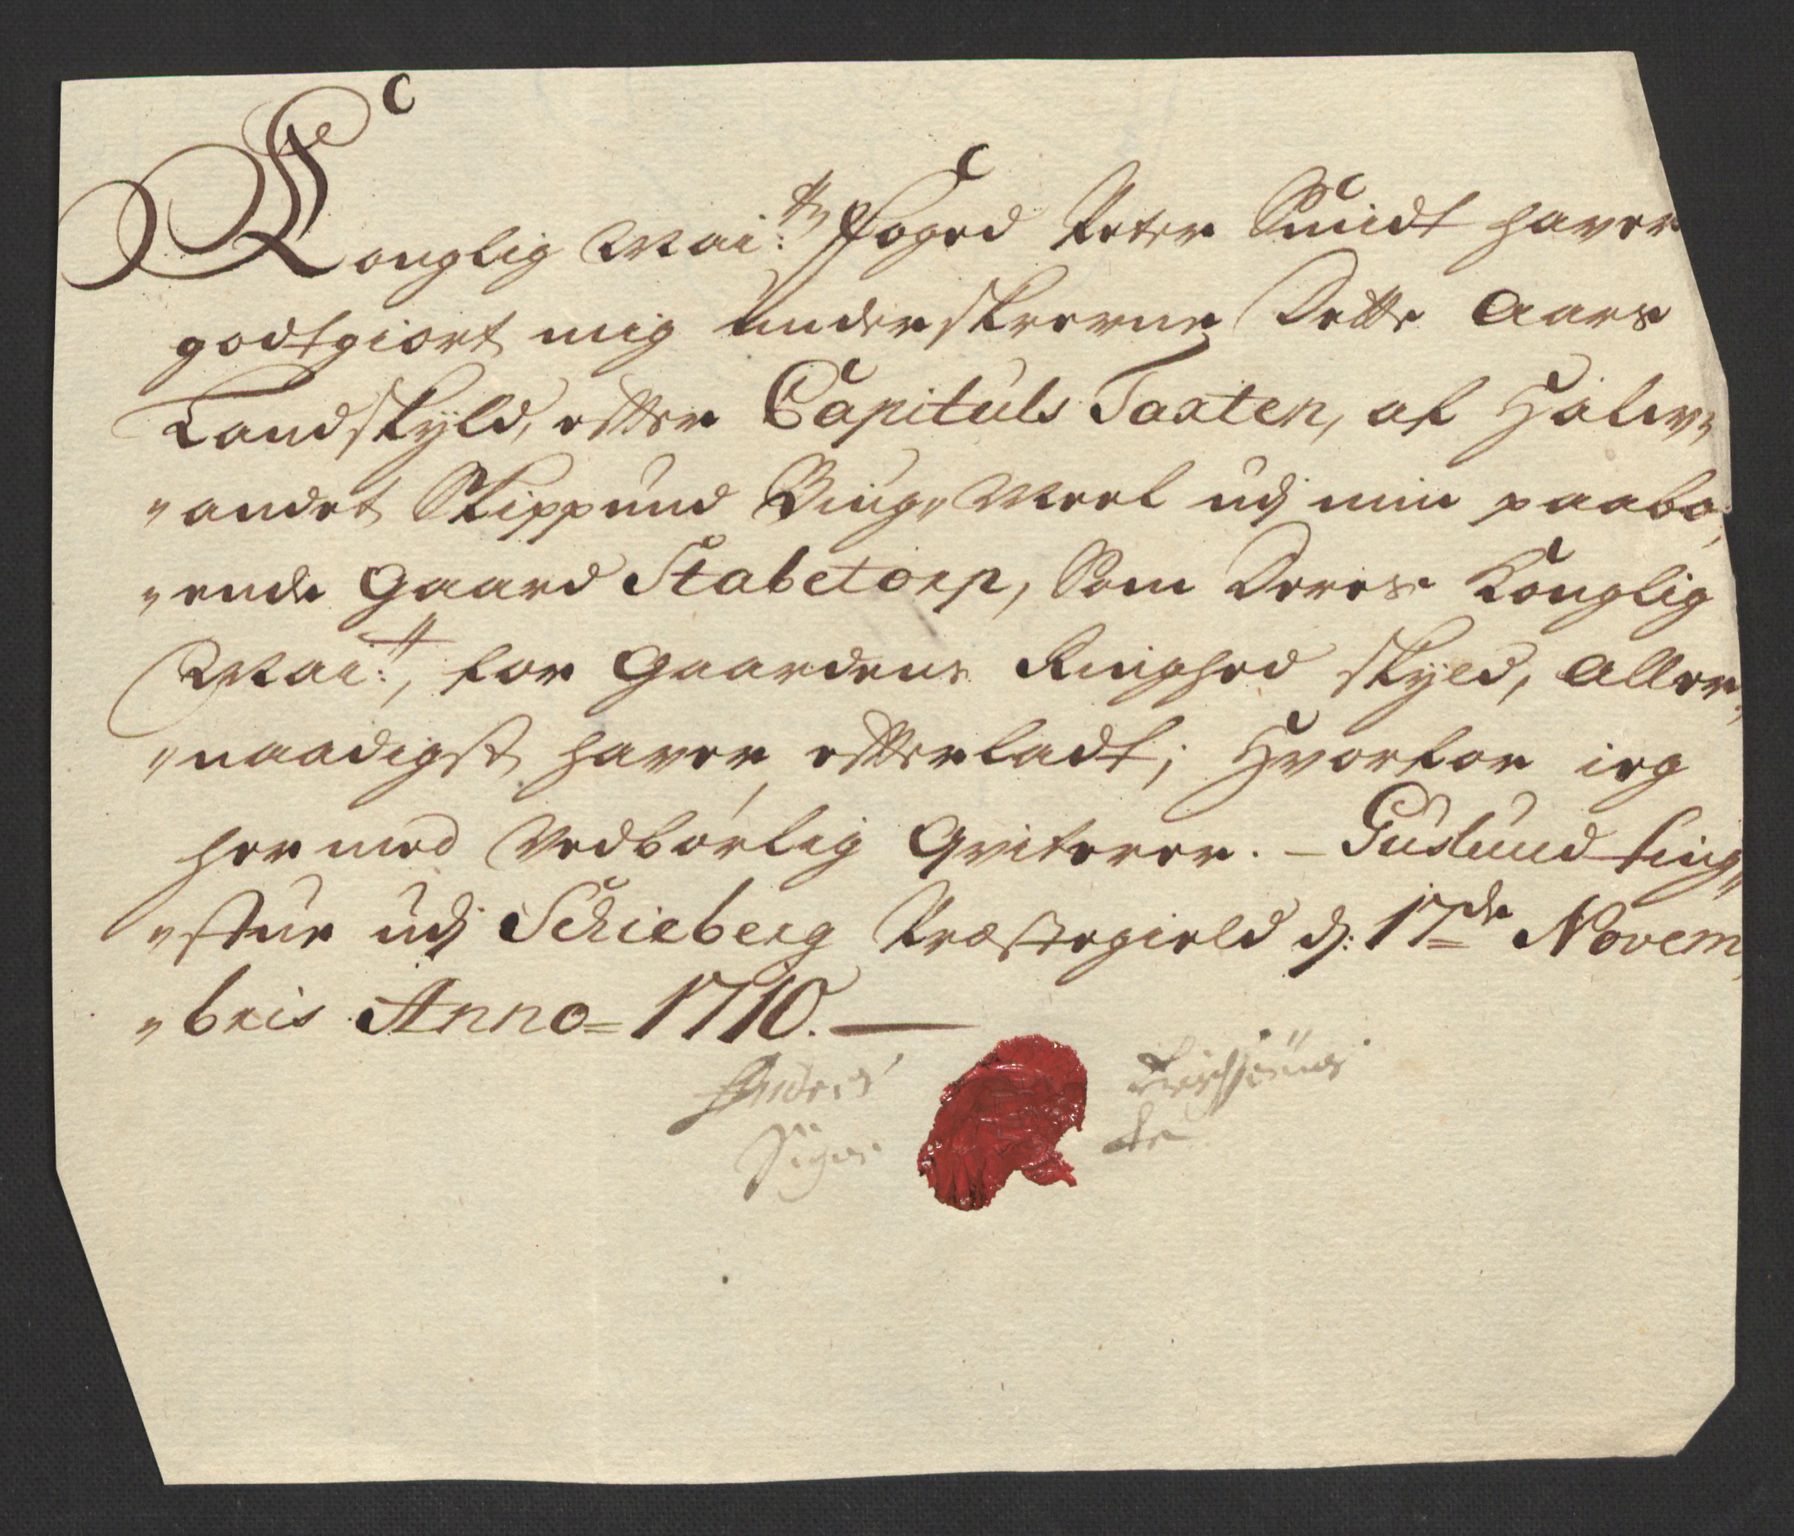 Konglig Mai:ts Foged Peter Smidt haver
godtgiort mig underskrevne Dette Aars
Landskyld, efter Capituls Taxten, af Halv-
-andet Skippund Biug-Meel udj min paabo-
-ende Gaard Stabetorp, Som Deres Konglig
Mai:t, for Gaardens Ringhed skyld, Aller-
-naadigst haver efterladt; Hvorfor ieg
hermed Vedbørlig Qviterer. – Gudlund Ting-
-stue udj Schieberg Præstegield d: 17de Novem-
-bris Anno = 1710. —
Andres